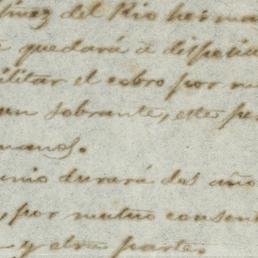 tinez del Rio herma
quedará a disposic
cilitar el cobro por m
un sobrante, este pe
manos.
enio durará dos año
, por mutuo consent
y otra parte.